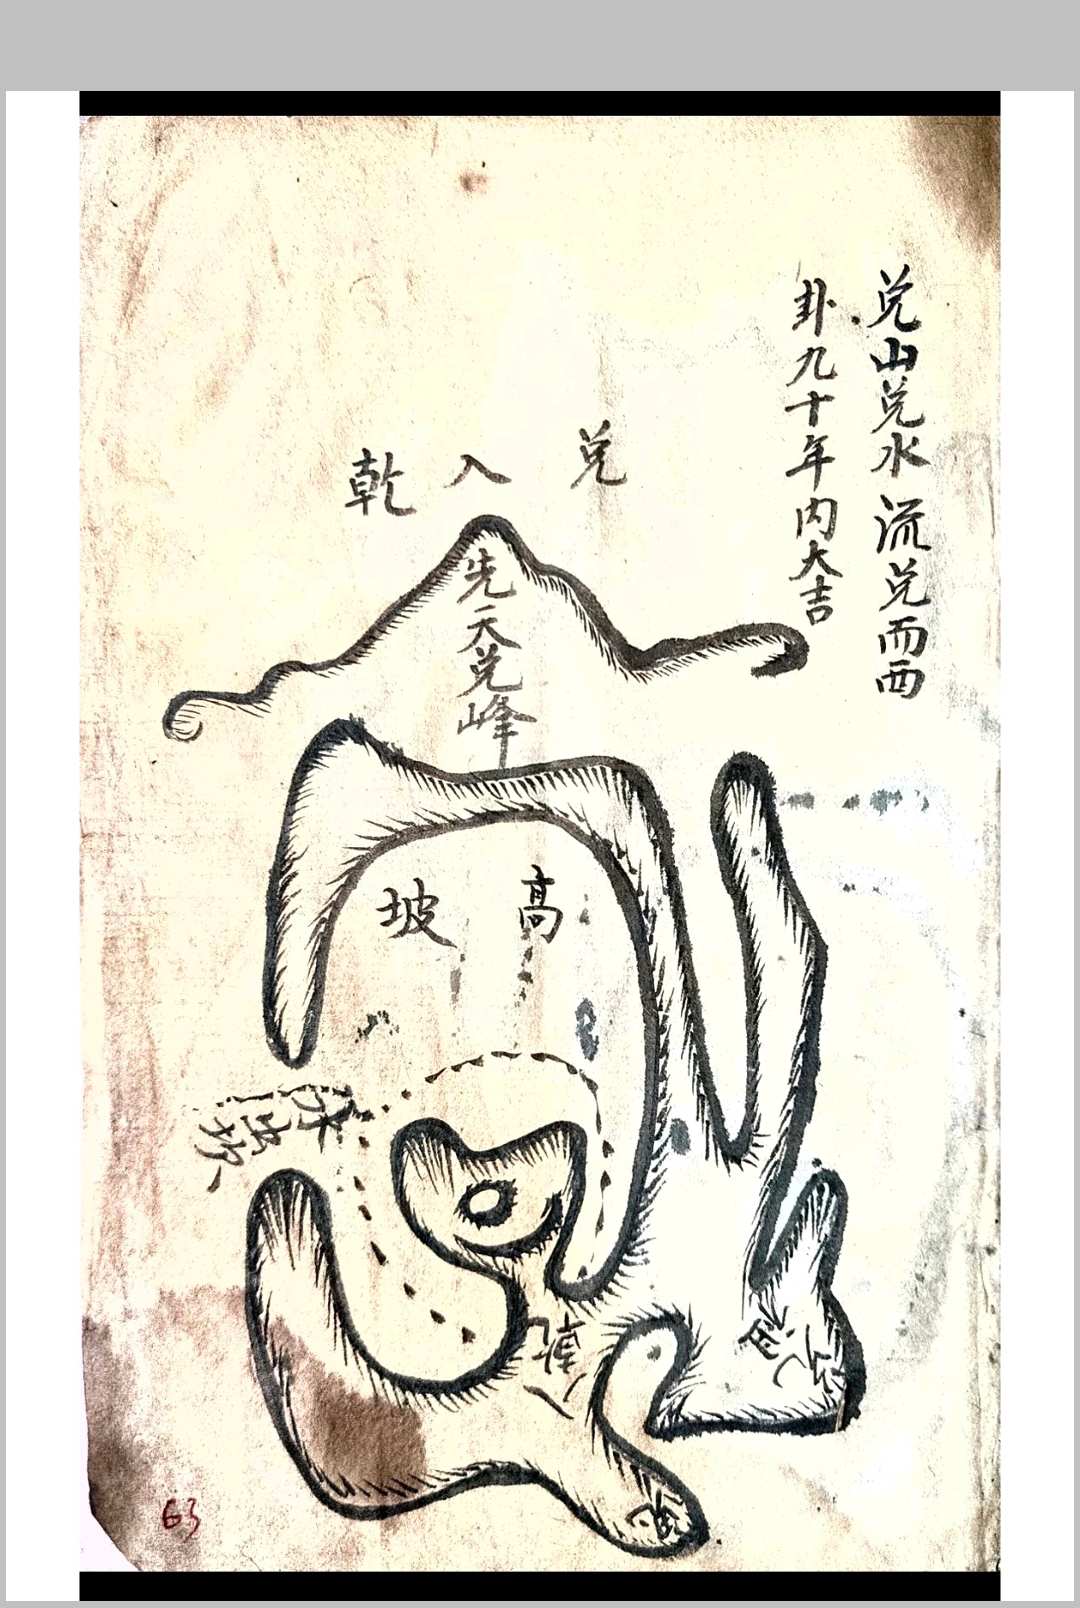 兑山兑水流兑而西
卦九十年内大吉
兑入乾
先天兑峰
高坡
乾入
63